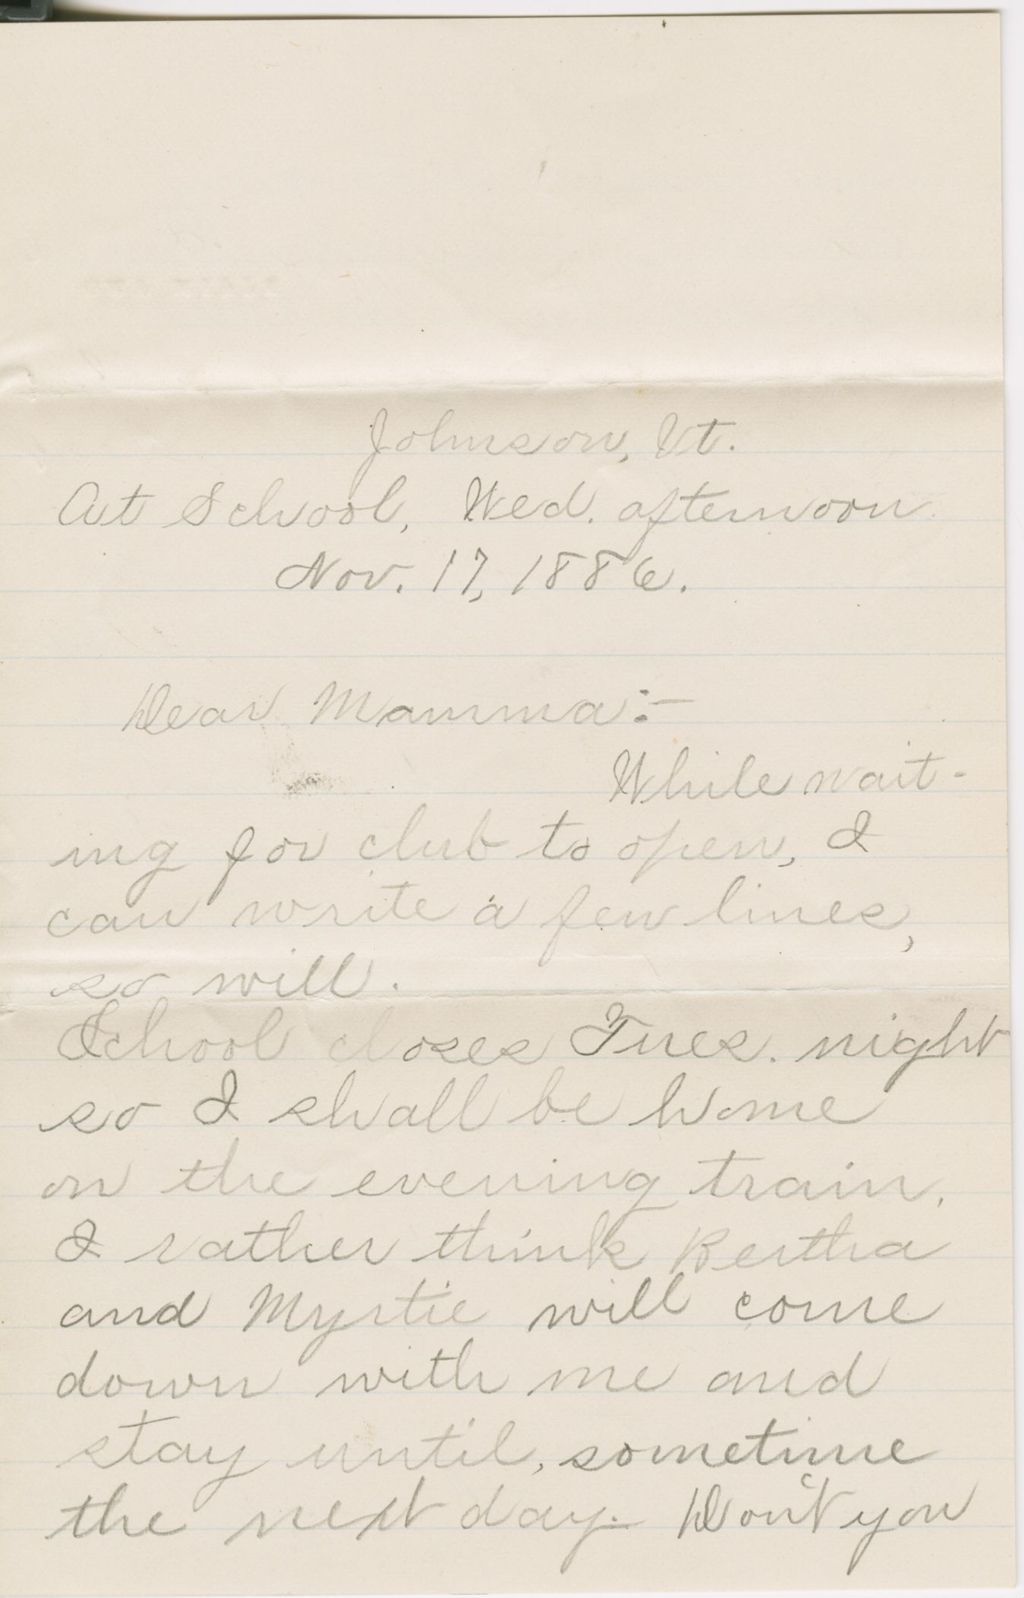 Johnson, Vt.
At School, Wed. afternoon
Nov. 17, 1886.
Dear Mamma:-
While wait-
ing for club to open, I
can write a few lines,
so will.
School closes Tues. night
so I shall be home
on the evening train.
I rather think Bertha
and Myrtie will come
down with me and
stay until, sometime
the next day. Don't you